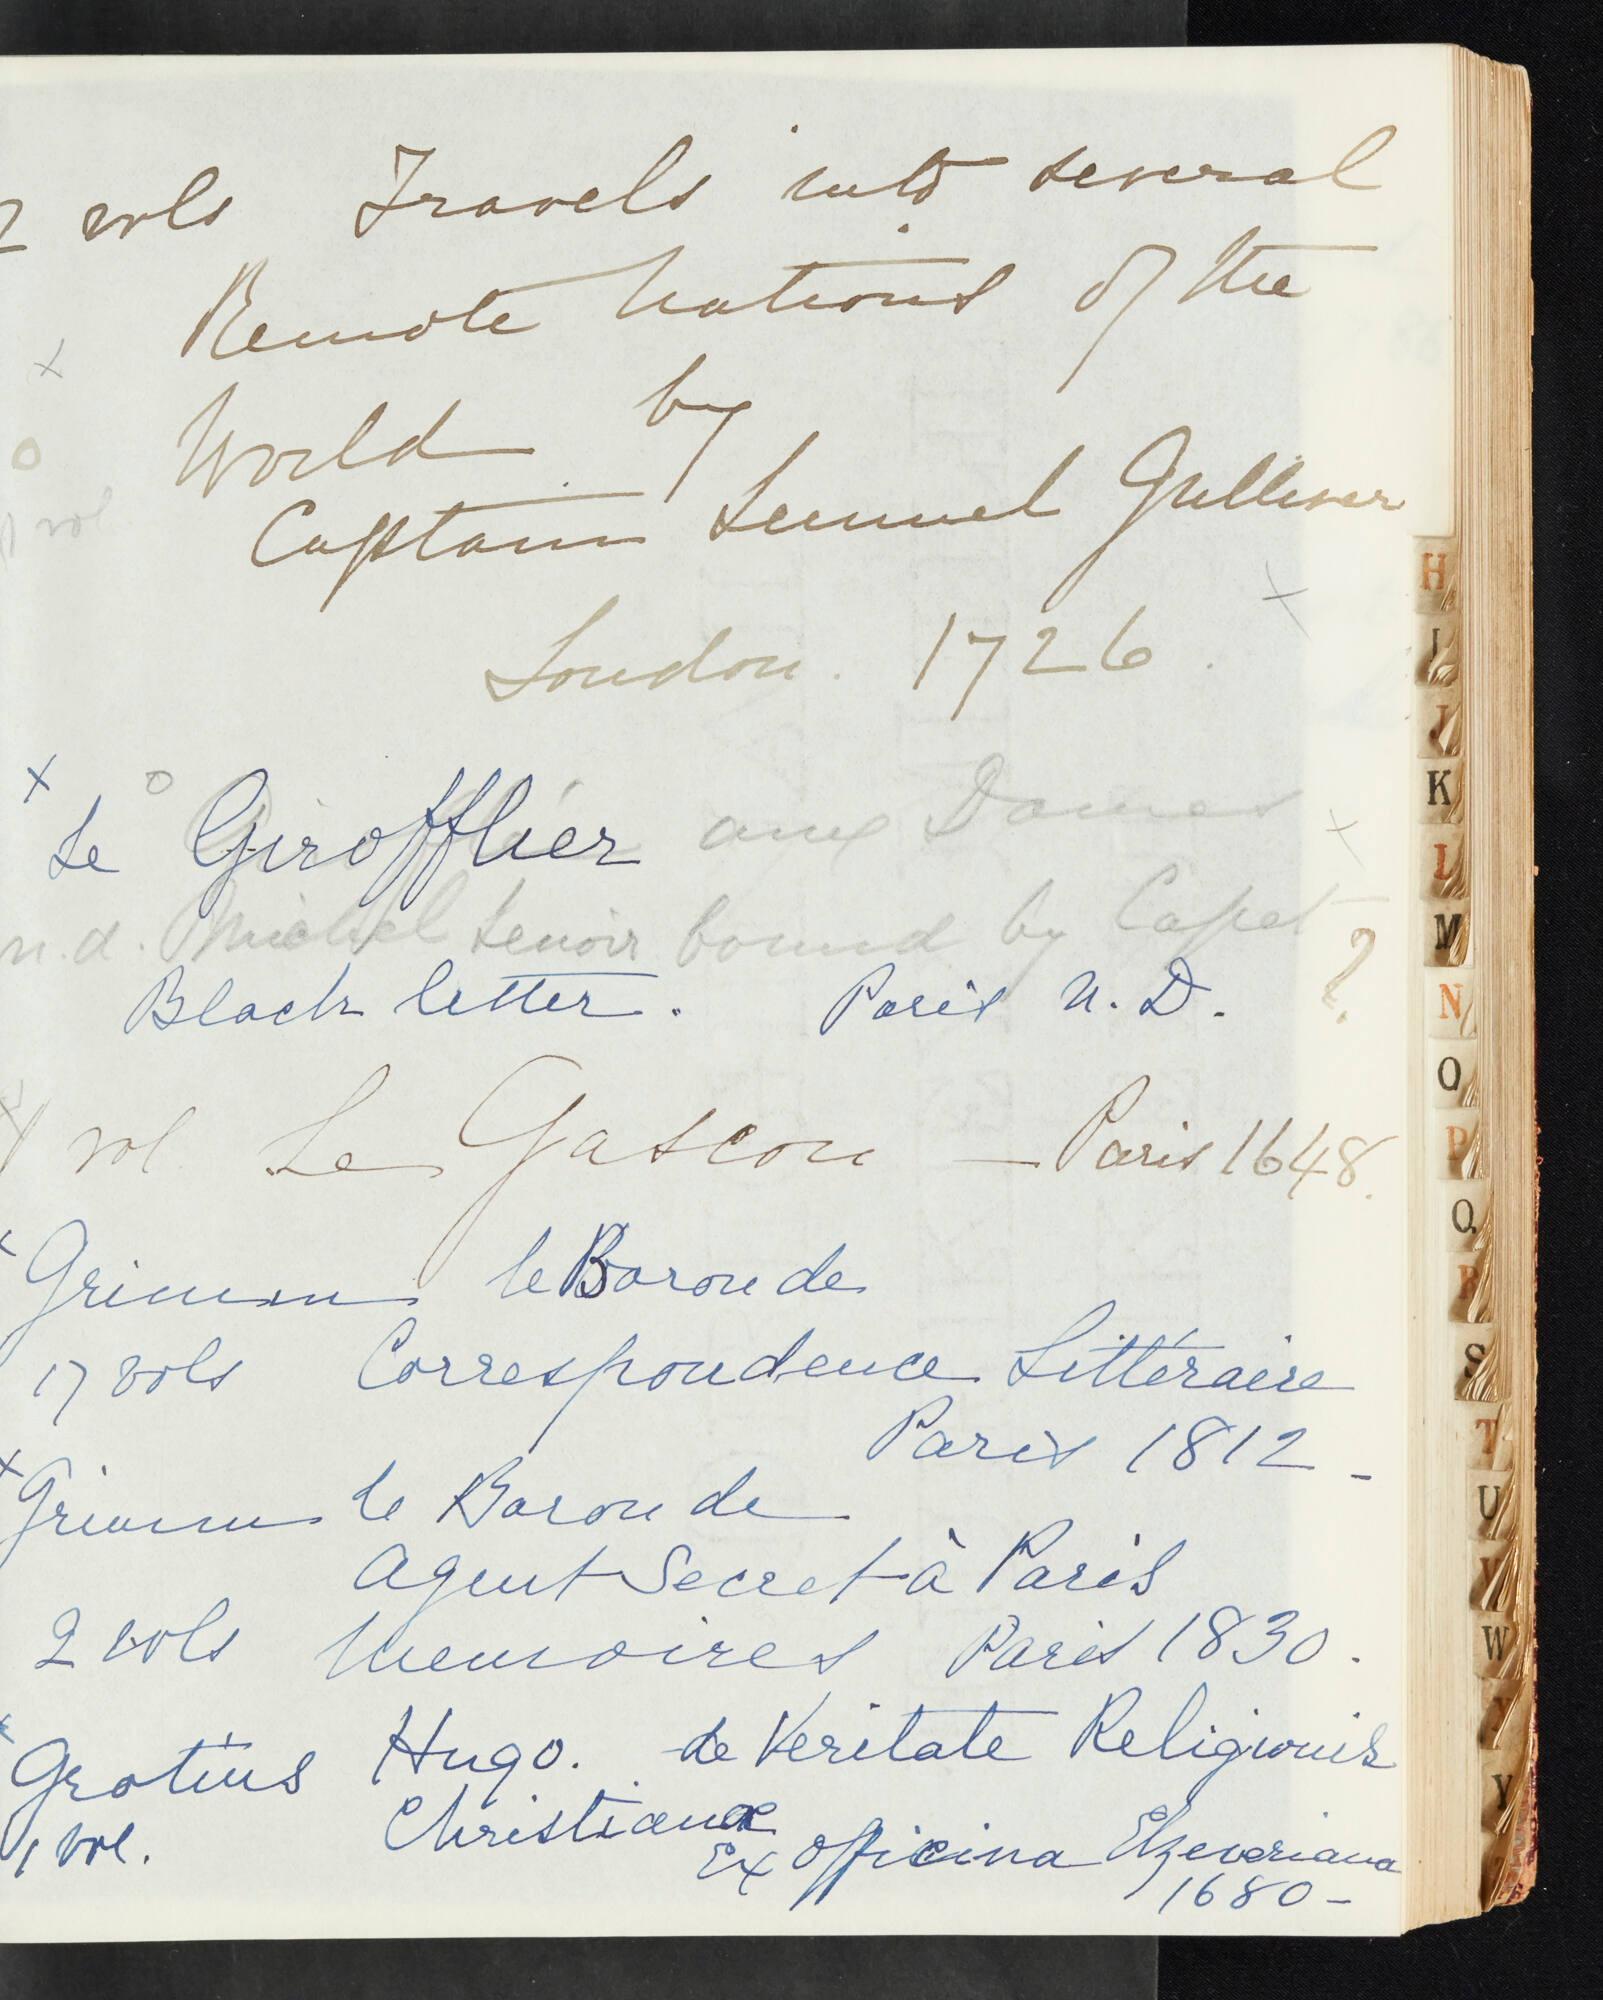 2 vols Travels into several
Remote Nations of the
x
World by
o
1 vol
Captain Lemuel Gulliver
x
London. 1726.
x o
Le Girofflier aux Dames x
n.d. Michel Lenoir bound by Capet ?
Black letter. Paris N.D.
1 vol Le Gascon — Paris 1648.
x Grimm le Baron de
17 vols Correspondence Littéraire
Paris 1812 -
x Grimm le Baron de
Agent Secret à Paris
2 vols Memoires Paris 1830.
x Grotius Hugo. de Veritate Religionis
1 vol. Christianae
Ex Officina Elzeveriana
1680 -
H
I
J
K
L
M
N
O
P
Q
R
S
T
U
V
W
Y